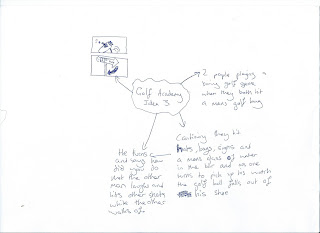 Golf Academy
Idea 3
2 people playing a
boring golf game
when they both hit
a mans golf bag
Continuing they hit
hats, bags, signs and
a mans glass of water
in the air and as one
turns to pick up his watch
the golf ball falls out of
his shoe
He turns
and says how
did you do
that the other
man laughs and
hits other shots
while the other
walks of.